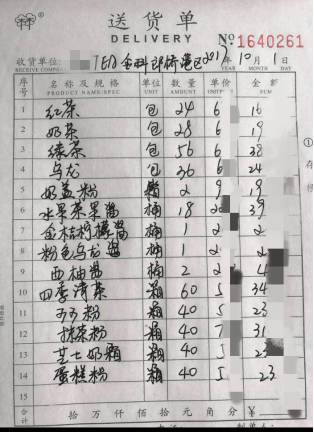 送货单
DELIVERY №1640261
收货单位: 2017年10月1日
RECEIVE COMPANY YEAR MONTH DAY
序号 名称及规格 单位 数量 单价 金额
NO. PRODUCT NAME/SPEC UNIT AMOUNT UNIT PRICE SUM
1 红茶 包 24 6 16
2 奶茶 包 28 6 19
3 绿茶 包 56 6 38
4 乌龙 包 36 6 24
5 奶盖粉 箱 2 9 19
6 水果茶果酱 桶 18 2 39
7 金桔柠檬酱 桶 1 2 2
8 粉色乌龙酱 桶 1 2 2
9 西柚酱 桶 2 2 4
10 四季清茶 箱 60 5 34
11 可可粉 箱 40 5 23
12 抹茶粉 箱 40 7 31
13 芝士奶霜 箱 40 5 23
14 蛋糕粉 箱 40 5 23
15
合计 拾 万 仟 佰 拾 元 角 分 ¥